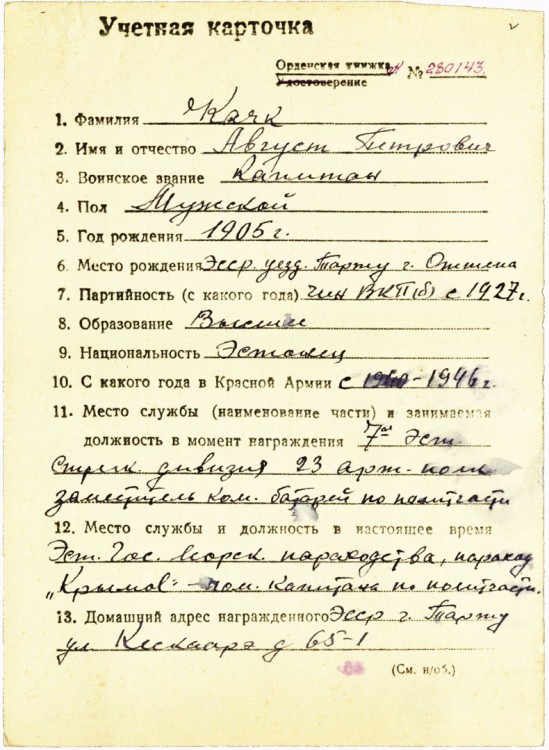 Учетная карточка
Орденская книжка № 280143
Удостоверение
1. Фамилия Каук
2. Имя и отчество Август Петрович
3. Воинское звание Капитан
4. Пол Мужской
5. Год рождения 1905 г.
6. Место рождения Эсср. уезд. Тарту г. Отепеа
7. Партийность (с какого года) Член ВКП(б) с 1927 г.
8. Образование Высшее
9. Национальность Эстонец
10. С какого года в Красной Армии с -1946 г.
11. Место службы (наименование части) и занимаемая
должность в момент награждения 7ая Эст.
Стрелк. дивизия 23 арт. полк
заместитель ком. батареи по политчасти
12. Место службы и должность в настоящее время
Эст. Гос. Морск. пароходства, пароход
„Крымов" - пом. капитана по политчасти.
13. Домашний адрес награжденного Эсср г. Тарту
ул. д 65-1
(См. н/об.)